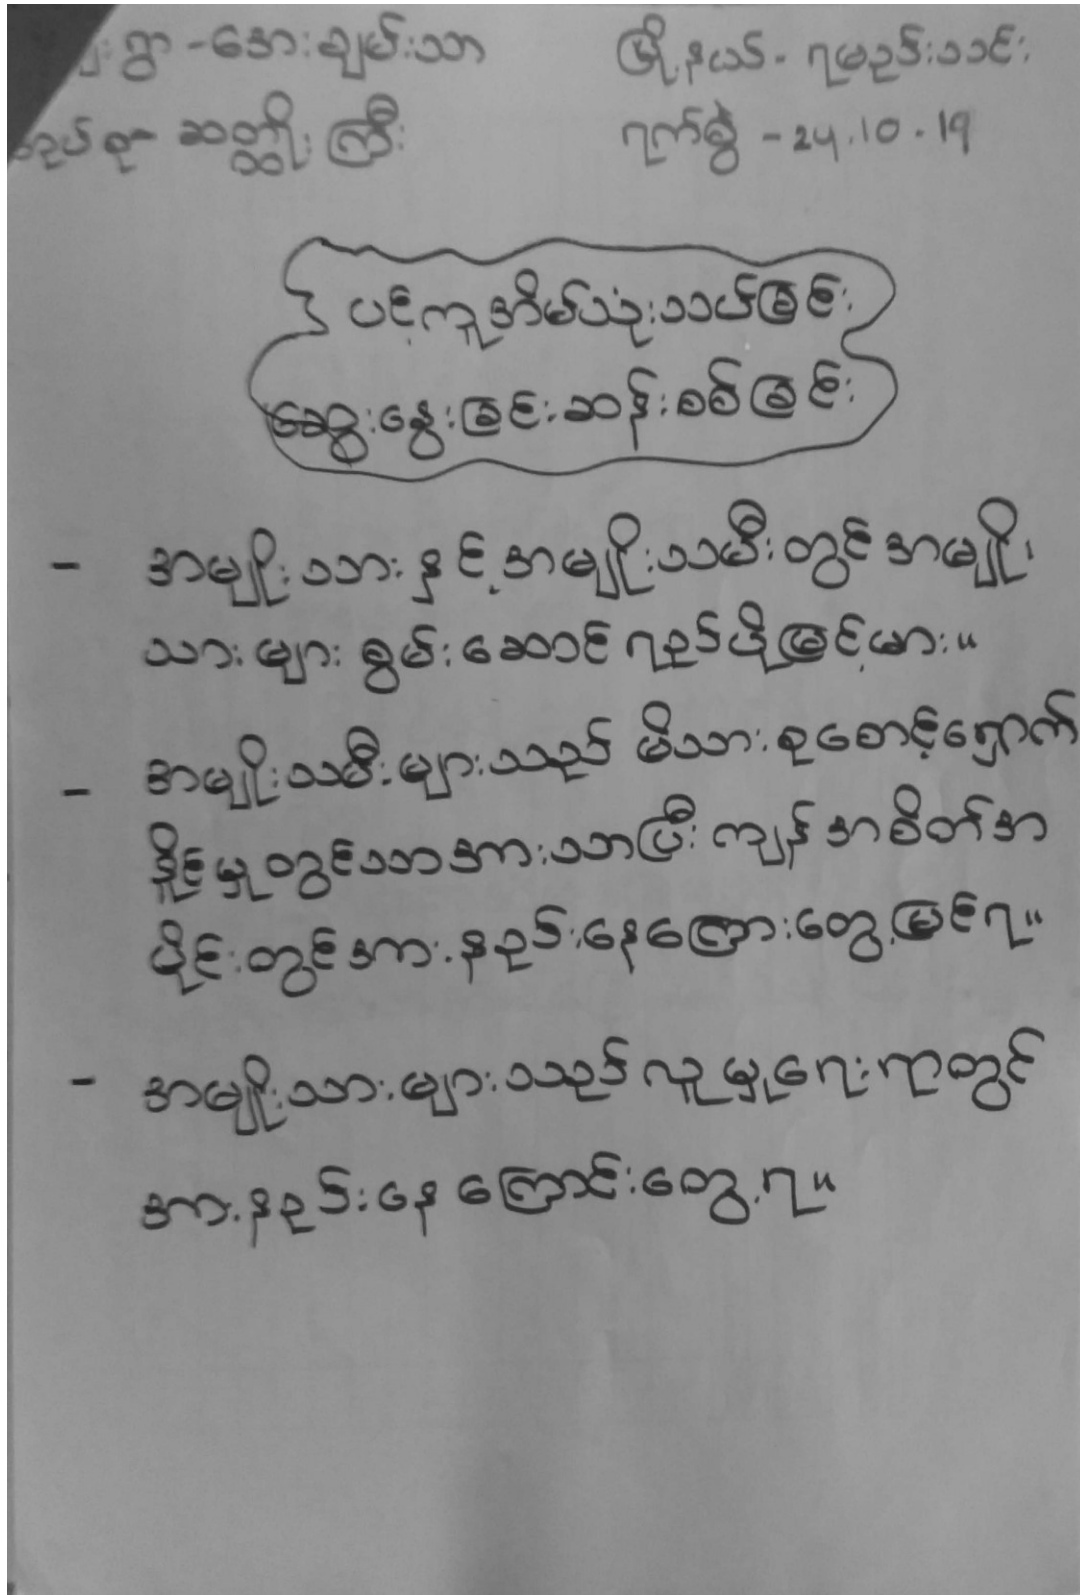 ရွာ - အေးချမ်းသာ မြို့နယ် - ရမည်းသင်း
အုပ်စု - ဆတ္ထိုးကြီး ရက်စွဲ - 24.10.19
ပင့်ကူအိမ်သုံးသပ်ခြင်း
ဆွေးနွေးခြင်းဆန်းစစ်ခြင်း
- အမျိုးသားနှင့်အမျိုးသမီးတွင်အမျိုး
သားများစွမ်းဆောင်ရည်ပိုမြင့်မား။
- အမျိုးသမီးများသည် မိသားစုစောင့်ရှောက်
နိုင်မှုတွင်သာအားသာပြီးကျန်အစိတ်အ
ပိုင်းတွင်အားနည်းနေကြေားတွေ့မြင်ရ။
- အမျိုးသားများသည် လူမှုရေးရာတွင်
အားနည်းနေကြောင်းတွေ့ရ။